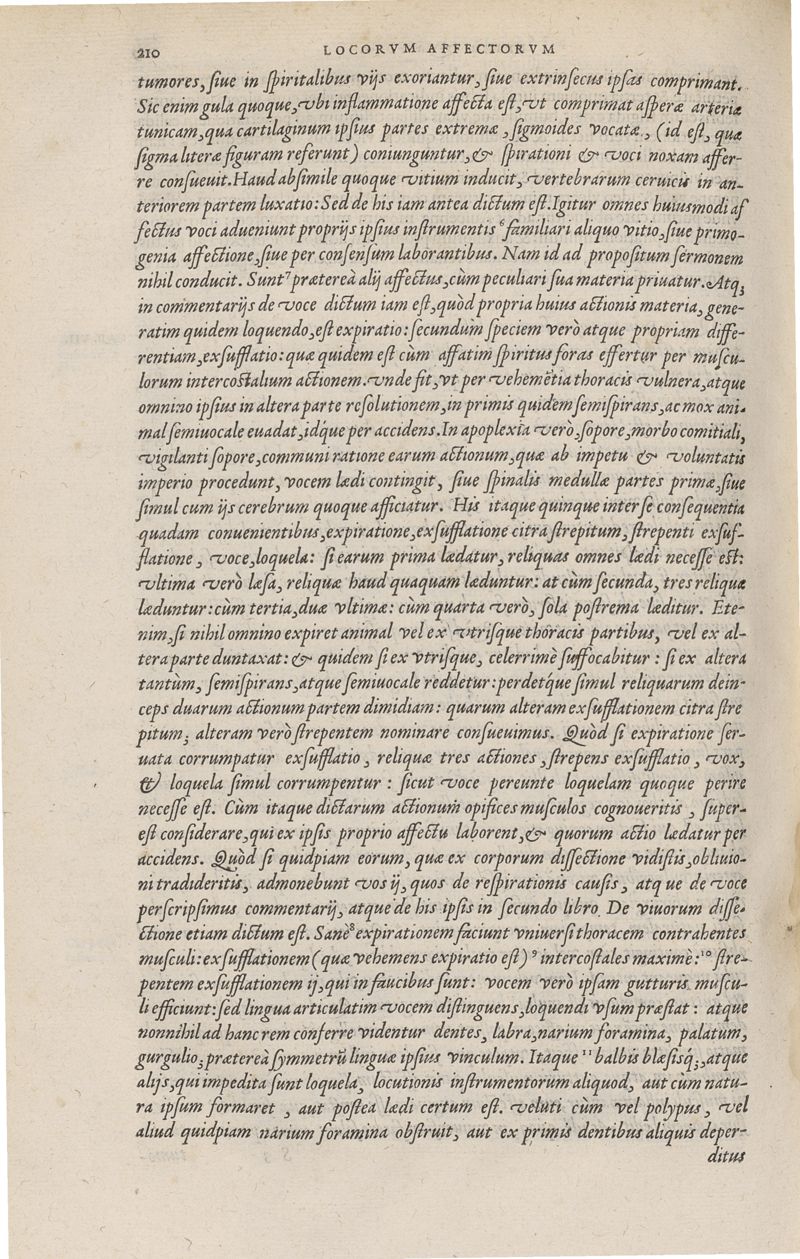 210 LOCORVM AFFECTORVM
tumores, ſiue in ſpiritalibus vijs exoriantur, ſiue extrinſecus ipſas comprimant.
Sic enim gula quoque, vbi inflammatione affecta eſt, vt comprimat aſperæ arteriæ
tunicam, qua cartilaginum ipſius partes extremæ, ſigmoides vocatæ, (id eſt, quæ
ſigma literæ figuram referunt) coniunguntur, & ſpirationi & voci noxam affer-
re conſueuit. Haud abſimile quoque vitium inducit, vertebrarum ceruicis in an-
teriorem partem luxatio: Sed de his iam antea dictum eſt. Igitur omnes huiusmodi af
fectus voci adueniunt proprijs ipſius inſtrumentis ⁶ familiari aliquo vitio, ſiue primo-
genia affectione, ſiue per conſenſum laborantibus. Nam id ad propoſitum ſermonem
nihil conducit. Sunt ⁷ prætereà alij affectus, cùm peculiari ſua materia priuatur. Atq;
in commentarijs de voce dictum iam eſt, quòd propria huius actionis materia, gene-
ratim quidem loquendo, eſt expiratio: ſecundùm ſpeciem verò atque propriam diffe-
rentiam, exſufflatio: quæ quidem eſt cùm affatim ſpiritus foras effertur per muſcu-
lorum intercoſtalium actionem. vnde fit, vt per vehemētia thoracis vulnera, atque
omnino ipſius in altera parte reſolutionem, in primis quidem ſemiſpirans, ac mox ani-
mal ſemiuocale euadat, idq́ue per accidens. In apoplexia verò, ſopore, morbo comitiali,
vigilanti ſopore, communi ratione earum actionum, quæ ab impetu & voluntatis
imperio procedunt, vocem lædi contingit, ſiue ſpinalis medullæ partes primæ, ſiue
ſimul cum ijs cerebrum quoque afficiatur. His itaque quinque inter ſe conſequentia
quadam conuenientibus, expiratione, exſufflatione citra ſtrepitum, ſtrepenti exſuf-
flatione, voce, loquela: ſi earum prima lædatur, reliquas omnes lædi neceſſe eſt:
vltima verò læſa, reliquæ haud quaquam læduntur: at cùm ſecunda, tres reliquæ
læduntur: cùm tertia, duæ vltimæ: cùm quarta verò, ſola poſtrema læditur. Ete-
nim, ſi nihil omnino expiret animal vel ex vtriſque thoracis partibus, vel ex al-
tera parte duntaxat: & quidem ſi ex vtriſque, celerrimè ſuffocabitur: ſi ex altera
tantùm, ſemiſpirans, atque ſemiuocale reddetur: perdetq́ue ſimul reliquarum dein-
ceps duarum actionum partem dimidiam: quarum alteram exſufflationem citra ſtre
pitum; alteram verò ſtrepentem nominare conſueuimus. Quòd ſi expiratione ſer-
uata corrumpatur exſufflatio, reliquæ tres actiones, ſtrepens exſufflatio, vox,
& loquela ſimul corrumpentur: ſicut voce pereunte loquelam quoque perire
neceſſe eſt. Cùm itaque dictarum actionum opifices muſculos cognoueritis, ſuper-
eſt conſiderare, qui ex ipſis proprio affectu laborent, & quorum actio lædatur per
accidens. Quòd ſi quidpiam eorum, quæ ex corporum diſſectione vidiſtis, obliuio-
ni tradideritis, admonebunt vos ij, quos de reſpirationis cauſis, atque de voce
perſcripſimus commentarij, atque de his ipſis in ſecundo libro De viuorum diſſe-
ctione etiam dictum eſt. Sanè ⁸ expirationem faciunt vniuerſi thoracem contrahentes
muſculi: exſufflationem (quæ vehemens expiratio eſt) ⁹ intercoſtales maximè: ¹⁰ ſtre-
pentem exſufflationem ij, qui in faucibus ſunt: vocem verò ipſam gutturis muſcu-
li efficiunt: ſed lingua articulatim vocem diſtinguens, loquendi vſum præſtat: atque
nonnihil ad hanc rem conferre videntur dentes, labra, narium foramina, palatum,
gurgulio; prætereà ſymmetrū linguæ ipſius vinculum. Itaque ¹¹ balbis blæſisq;, atque
alijs, qui impedita ſunt loquela, locutionis inſtrumentorum aliquod, aut cùm natu-
ra ipſum formaret, aut poſtea lædi certum eſt. veluti cùm vel polypus, vel
aliud quidpiam narium foramina obſtruit, aut ex primis dentibus aliquis deper-
ditus